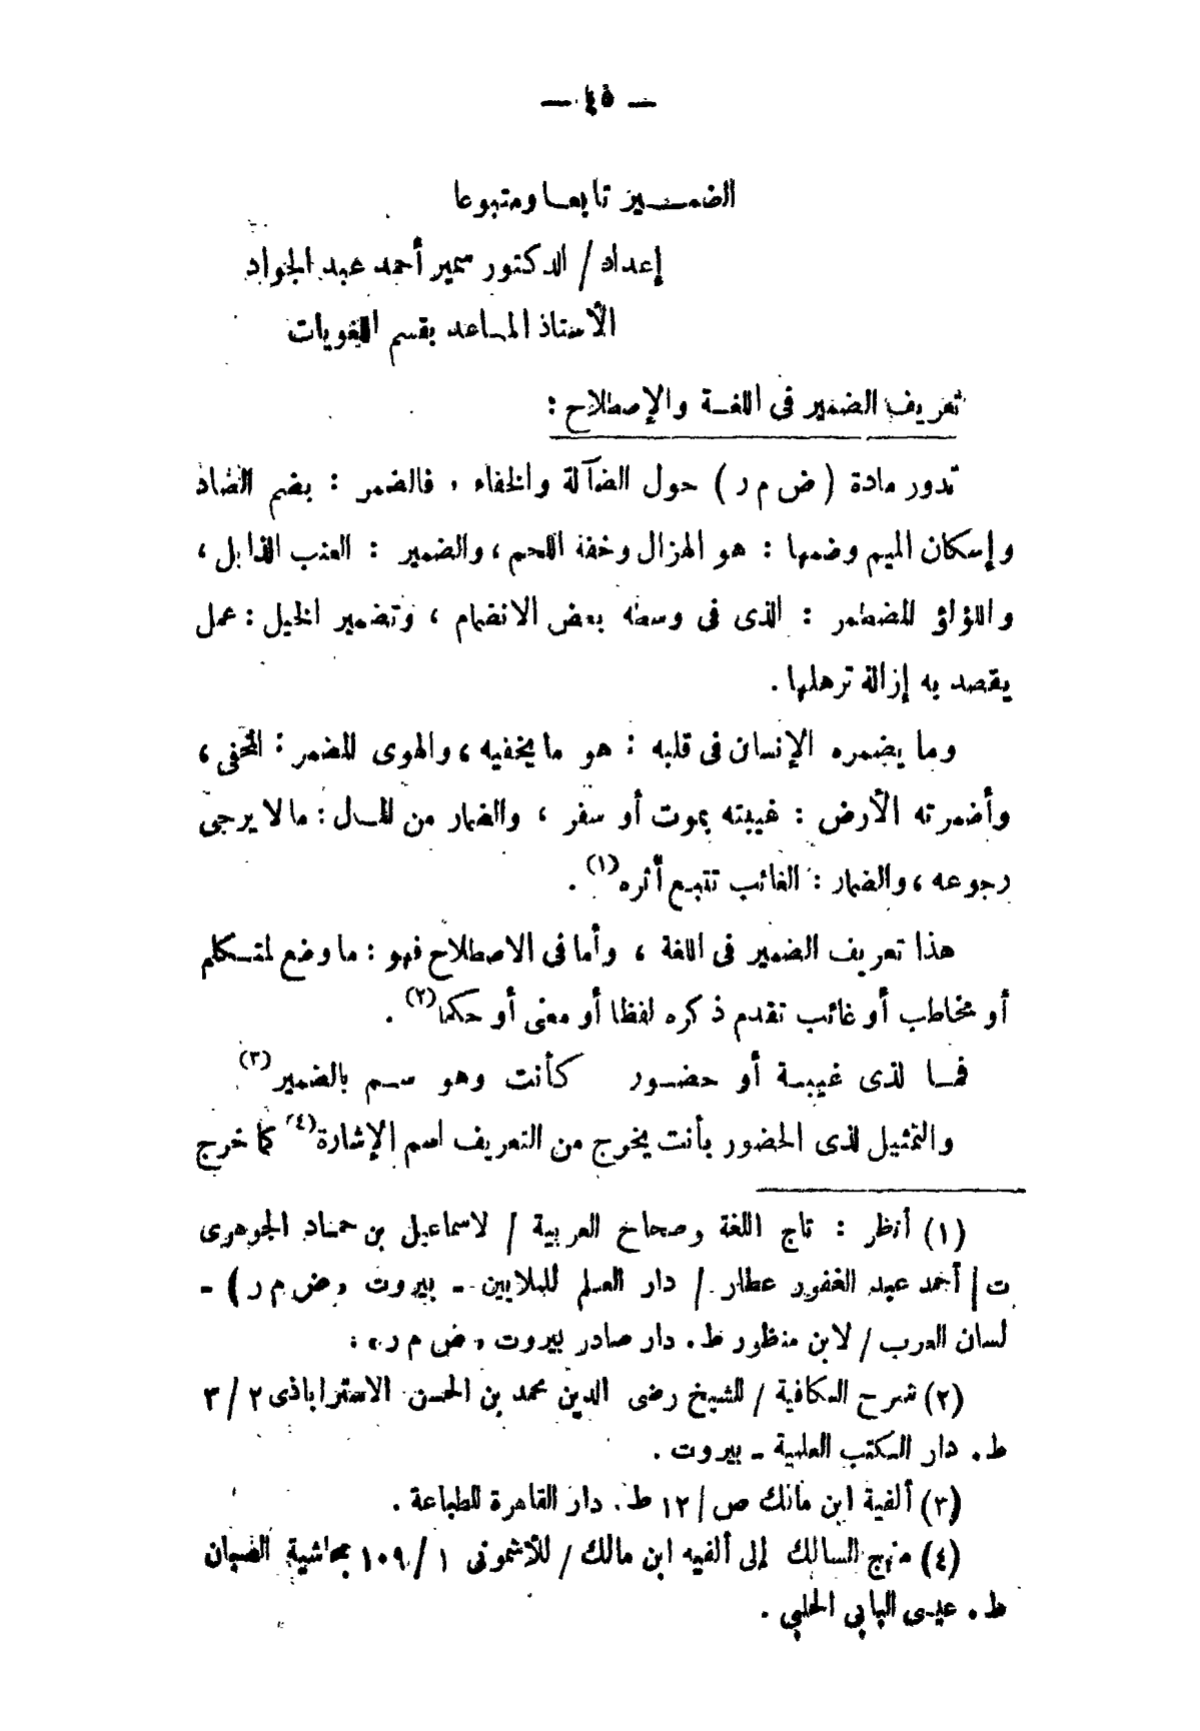 — ٤٥ —
الضمـــير تابعـا ومتبوعا
إعداد / الدكتور سمير أحمد عبد الجواد
الأستاذ المساعد بقسم اللغويات
تعريف الضمير فى اللغـة والإصطلاح :
تدور مادة ( ض م ر ) حول الضآلة والخفاء ، فالضمر : بضم الضاد
وإسكان الميم وضمها : هو الهزال وخفة اللحم ، والضمير : العنب الذابل ،
واللؤلؤ المضطمر : الذى فى وسطه بعض الانضمام ، وتضمير الخيل : عمل
يقصد به إزالة ترهلها .
وما يضمره الإنسان فى قلبه : هو ما يخفيه ، والهوى المضمر : المخفى ،
وأضمرته الأرض : غيبته بموت أو سفر ، والضمار من المـال : ما لا يرجى
رجوعه ، والضمار : الغائب تتبع أثره (١) .
هذا تعريف الضمير فى اللغة ، وأما فى الاصطلاح فهو : ما وضع لمتـكلم
أو مخاطب أو غائب تقدم ذكره لفظا أو معنى أو حكما (٢) .
فمـا لذى غيبـة أو حضـور كأنت وهو سـم بالضمير (٣)
والتمثيل لذى الحضور بأنت يخرج من التعريف اسم الإشارة (٤) كما خرج
(١) أنظر : تاج اللغة وصحاح العربية / لاسماعيل بن حماد الجوهرى
ت / أحمد عبد الغفور عطار / دار العلم للملايين - بيروت ، ض م ر ) -
لسان العرب / لابن منظور ط . دار صادر بيروت « ض م ر » .
(٢) شرح الكافية / للشيخ رضى الدين محمد بن الحسن الاستراباذى ٢ / ٣
ط . دار الكتب العلمية - بيروت .
(٣) ألفية ابن مالك ص / ١٢ ط . دار القاهرة للطباعة .
(٤) منهج السالك إلى ألفيه ابن مالك / للأشمونى ١ / ١٠٩ بحاشية الصبان
ط . عيسى البابى الحلبى .